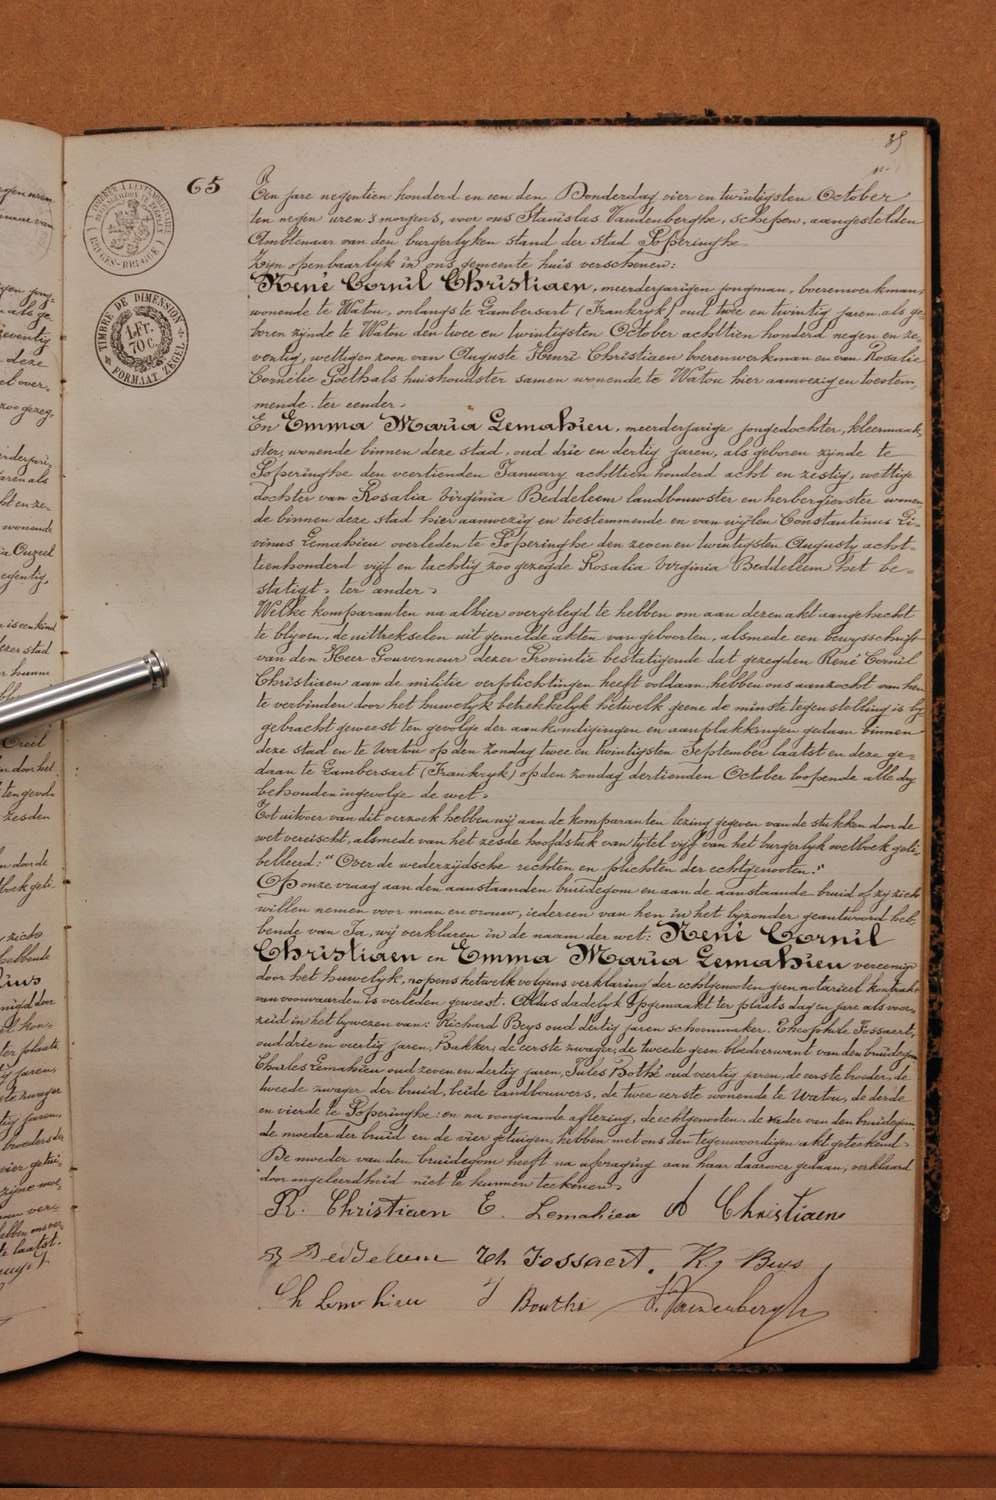 85
65
TIMBRE DE DIMENSION
1 Fr. 70 C.
FORMAAT ZEGEL
BRUGES-BRUGGE
Een jare negentien honderd en een den Donderdag vier en twintigsten October
ten negen uren 's morgens, voor ons Stanislas Vandenberghe, schepen, aangestelden
Ambtenaar van den burgerlyken stand der stad Poperinghe
Zijn openbaarlyk in ons gemeente huis verschenen:
René Cornil Christiaen, meerderjarigen jongman, boerenwerkman,
wonende te Watou, onlangs te Lambersart (Frankryk) oud twee en twintig jaren als ge-
boren zijnde te Watou den twee en twintigsten October achttien honderd negen en ze-
ventig, wettigen zoon van Auguste Henri Christiaen boerenwerkman en van Rosalie
Cornélie Goethals huishoudster samen wonende te Watou hier aanwezig en toestem-
mende ter eender.
En Emma Maria Lemahieu, meerderjarige jongedochter, kleermaak-
ster, wonende binnen deze stad, oud drie en dertig jaren, als geboren zijnde te
Poperinghe den veertienden January achttien honderd acht en zestig, wettige
dochter van Rosalia Virginia Beddeleem landbouwster en herbergierster wonen-
de binnen deze stad hier aanwezig en toestemmende en van wijlen Constantinus Li-
vinus Lemahieu overleden te Poperinghe den zeven en twintigsten Augusty acht-
tienhonderd vijf en tachtig zoo gezegde Rosalia Virginia Beddeleem het be-
statigt, ter ander.
Welke komparanten na alhier overgelegd te hebben om aan dezen akt aangehecht
te blyven, de uittrekselen uit gemelde akten van geboorten, alsmede een bewysschrift
van den Heer Gouverneur dezer Provintie bestatigende dat gezegden René Cornil
Christiaen aan de militie verplichtingen heeft voldaan, hebben ons aanzocht van hen
te verbinden door het huwelyk betrekkelyk hetwelk geene de minste tegenstelling is by-
gebracht geweest ten gevolge der aankondigingen en aanplakkingen gedaan binnen
deze stad en te Watou op den Zondag twee en twintigsten September laatst en deze ge-
daan te Lambersart (Frankryk) op den zondag dertienden October loopende alle dry
behouden ingevolge de wet.
Tot uitvoer van dit verzoek hebben wij aan de komparanten lezing gegeven van de stukken door de
wet vereischt, alsmede van het zesde hoofdstuk van tytel vijf van het burgerlyk wetboek geti-
belleerd: "Over de wederzijdsche rechten en plichten der echtgenooten."
Op onze vraag aan den aanstaanden bruidegom en aan de aanstaande bruid of zy zich
willen nemen voor man en vrouw, ieder een van hen in het byzonder geantwoord heb-
bende van Ja, wij verklaren in de naam der wet: René Cornil
Christiaen en Emma Maria Lemahieu vereenigt
door het huwelyk, nopens hetwelk volgens verklaring der echtgenooten geen notarieel kontrakt
van voorwaarden is verleden geweest. Aldus dadelyk opgemaakt ter plaats dag en jare als voor-
zeid in het bywezen van: Richard Beys oud dertig jaren schoenmaker. Theophile Fossaert,
oud drie en veertig jaren, Bakker, de eerste zwager, de tweede geen bloedverwant van den bruidegom
Charles Lemahieu oud zeven en dertig jaren, Jules Bothé oud veertig jaren, de eerste broeder, de
tweede zwager der bruid, beide landbouwers, de twee eerste wonende te Watou, de derde
en vierde te Poperinghe: en na voorgaande aflezing, de echtgenooten, de vader van den bruidegom,
de moeder der bruid en de vier getuigen, hebben met ons den tegenwoordigen akt geteekend.
De moeder van den bruidegom heeft na afvraging aan haar daarover gedaan, verklaard
door ongeleerdheid niet te kunnen teekenen.
R. Christiaen E. Lemahieu A Christiaen
R Beddeleem Th Fossaert. R, Beys
Ch Lemahieu J Bouthé S. Vandenberghe